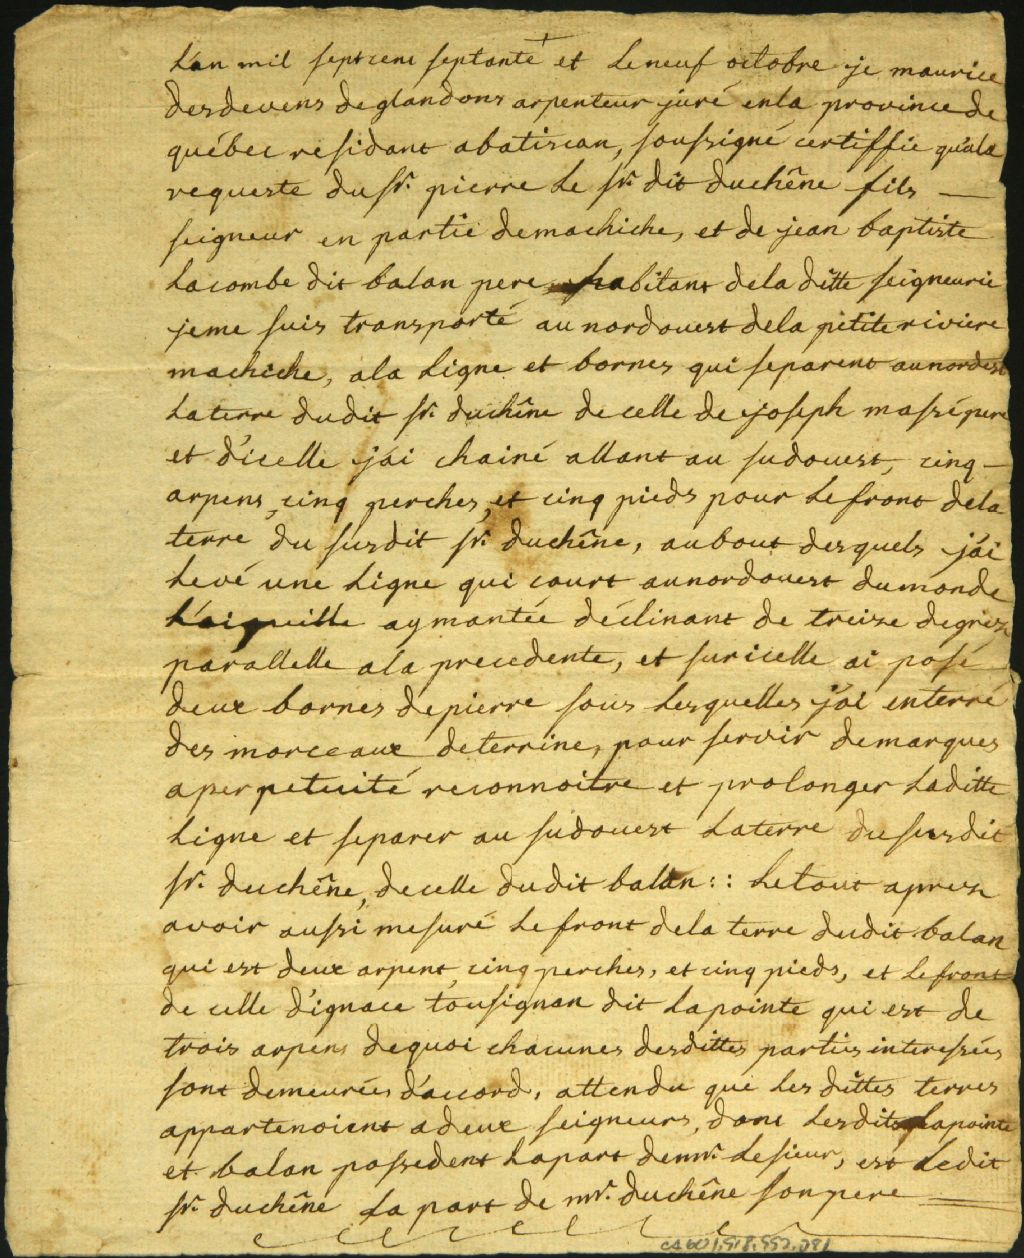 L'an mil septcent septante et le neuf octobre je maurice
desdevens deglandons arpenteur juré enla province de
québec residant abatiscan, soussigné certiffie qu'ala
requeste du sr. pierre le sr. dit duchêne fils —
seigneur en partie demachiche, et de jean baptiste
Lacombe dit balan pere habitant dela ditte seigneurie
jeme suis transporté au nordouest dela petite riviere
machiche, ala Ligne et bornes qui separent aunordest
Laterre dudit sr. duchêne de celle de joseph massé pere
et d'icelle j'ai chainé allant au sudouest, cinq —
arpens, cinq perches, et cinq pieds pour Lefront dela
terre du susdit sr. duchêne, aubout desquels j'ai
Levé une Ligne qui court aunordouest dumonde
L'aiguille aymantée déclinant de treize degrez
parallelle ala precedente, et suricelle ai posé
deux bornes depierre sous Lesquelles j'ai enterré
des morceaux deterrine, pour servir demarques
aperpetuité reconnoitre et prolonger Laditte
Ligne et separer au sudouest Laterre dususdit
sr. duchêne, decelle dudit balan :: Letout aprez
avoir aussi mesuré Lefront dela terre dudit balan
qui est deux arpent, cinq perches, et cinq pieds, et Lefront
de celle d'ignace tousignan dit Lapointe qui est de
trois arpens dequoi chacunes desdittes parties interessées
sont demeurées d'accord, attendu que Les dittes terres
appartenoient adeux seigneurs, dont Lesdits Lapointe
et balan possedent Lapart demr. Lesieur, est Ledit
sr. duchêne La part de mr. duchêne sonpere